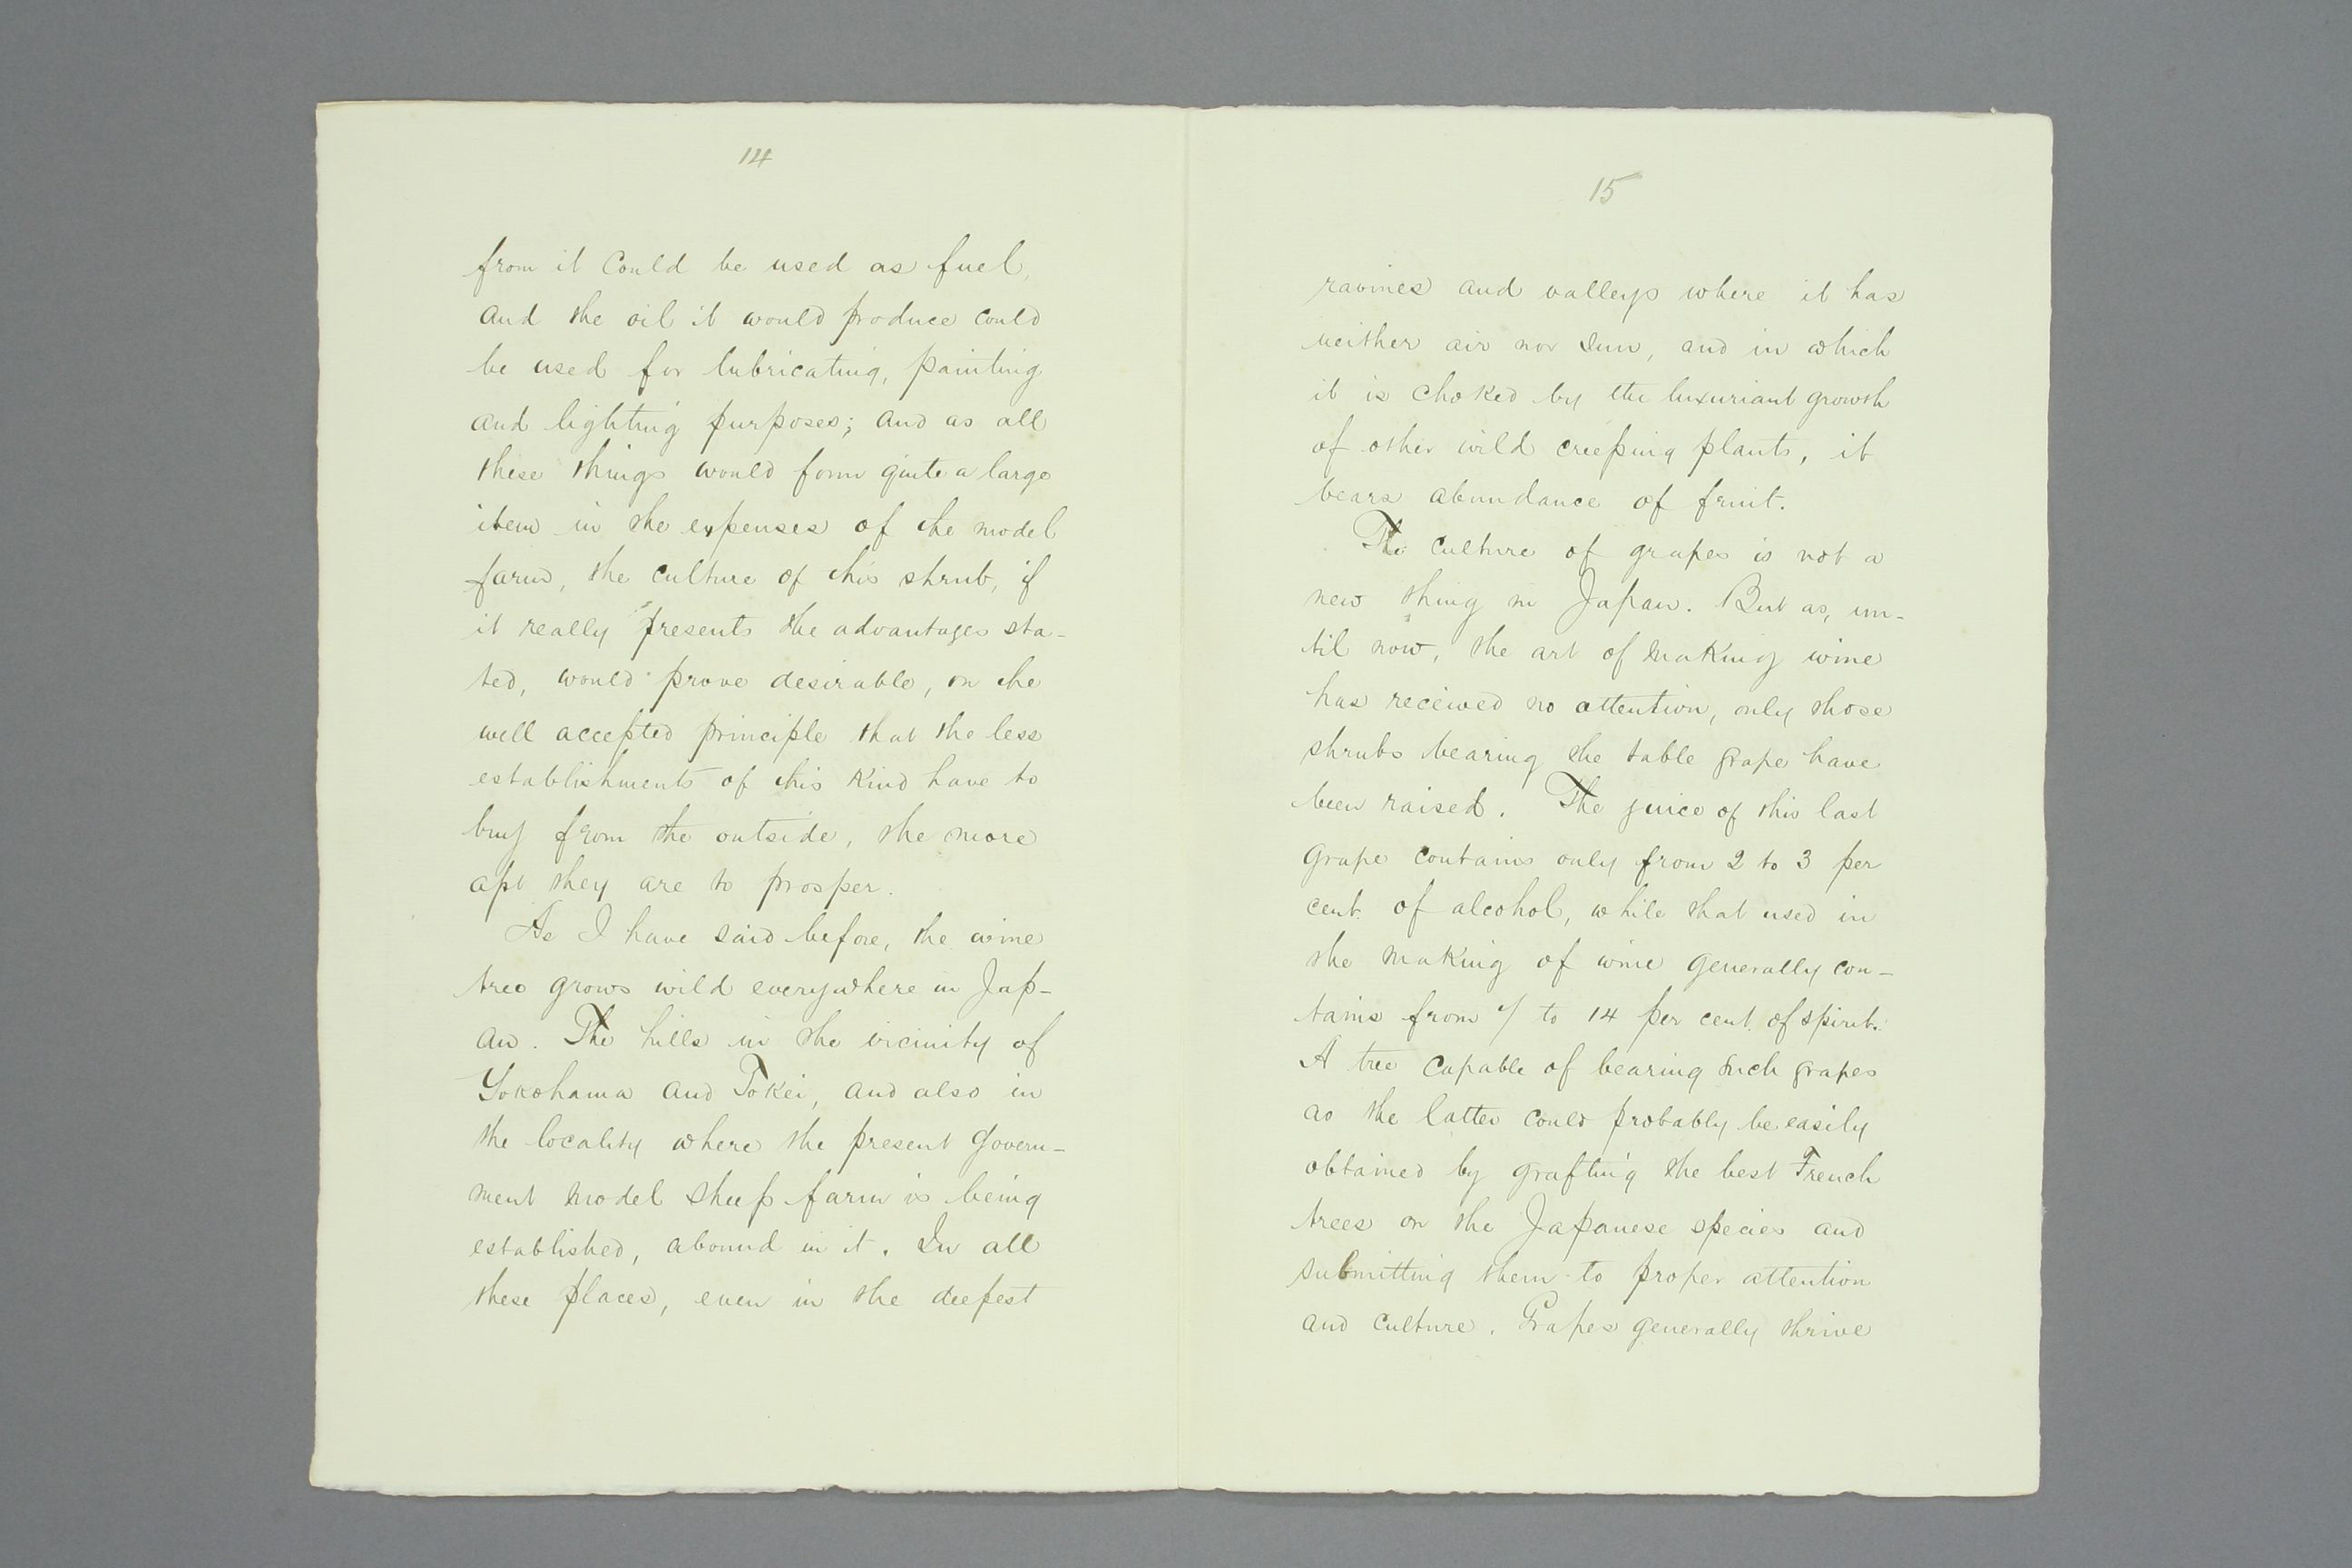 14
from it could be used as fuel,
and the oil it would produce could
be used for lubricating, painting
and lighting purposes; and as all
these things would form quite a large
item in the expenses of the model
farm, the culture of this shrub, if
it really presents the advantages sta-
ted, would prove desirable, on the
well accepted principle that the less
establishments of this kind have to
buy from the outside, the more
apt they are to prosper.
As I have said before, the wine
tree grows wild everywhere in Jap-
an. The hills in the vicinity of
Yokohama and Tokei, and also in
the locality where the present Govern-
ment model sheep farm is being
established, abound in it. In all
these places, even in the deepest
15
ravines and valleys where it has
neither air nor sun, and in which
it is choked by the luxuriant growth
of other wild creeping plants, it
bears abundance of fruit.
The culture of grapes is not a
new thing in Japan. But as, un-
til now, the art of making wine
has received no attention, only those
shrubs bearing the table grape have
been raised. The juice of this last
grape contains only from 2 to 3 per
cent. of alcohol, while that used in
the making of wine generally con-
tains from 7 to 14 per cent. of spirit.
A tree capable of bearing such grapes
as the latter could probably be easily
obtained by grafting the best French
trees on the Japanese species and
submitting them to proper attention
and culture. Grapes generally thrive